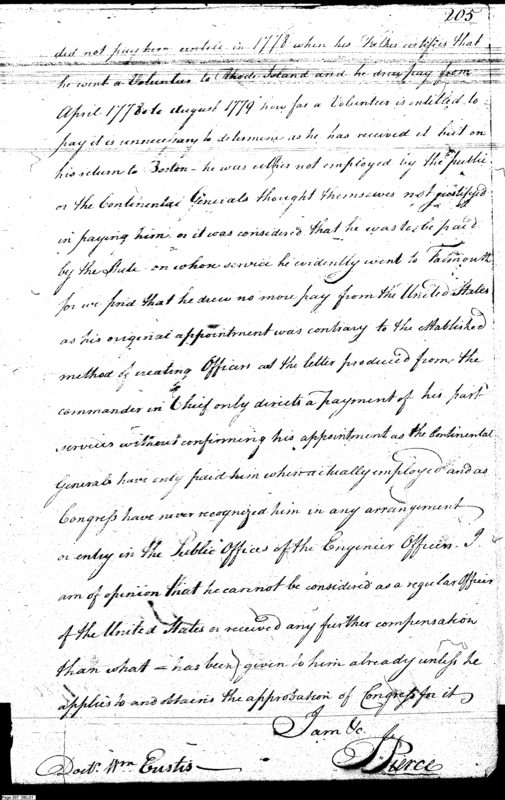 205
did not pay here untill in 1778 when his Father certifies that
he went a Volunteer to Rhode Island and he drew pay from
April 1778 to August 1779 how far a Volunteer is entitled to
pay it is unnecessary to determine as he has received it but on
his return to Boston – he was either not employed by the public
or the Continental Generals thought themselves not justifyed
in paying him or it was considered that he was to be paid
by the State on whose service he evidently went to Falmouth
for we find that he drew no more pay from the United States
as his original appointment was contrary to the established
method of creating Officers as the letter produced from the
commander in Chief only directs a payment of his past
services without confirming his appointment as the Continental
Generals have only paid him when actually employed and as
Congress have never recognized him in any arrangement
or entry in the Public Offices of the Engenier Officers. I
am of opinion that he cannot be considered as a regular Officer
of the United States or received any further compensation
than what – has been given to him already unless he
applies to and obtains the approbation of Congress for it
I am &c.
J Pierce
Doctr. Wm Eustis